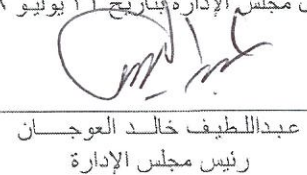 مجلس الإدارة بتاريخ ٢١ يوليو
عبداللطيف خالد العوجان
رئيس مجلس الإدارة